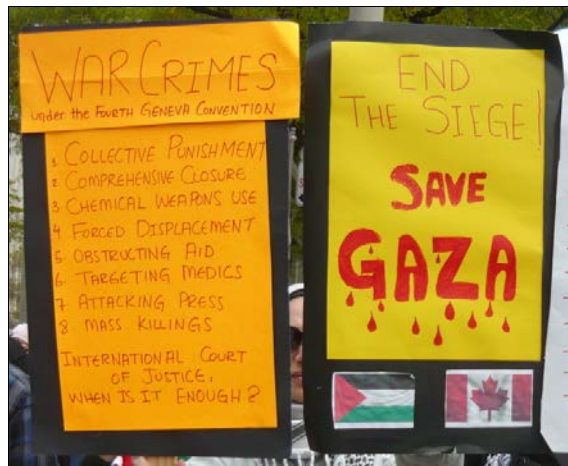 WAR CRIMES
under the FOURTH GENEVA CONVENTION
1. COLLECTIVE PUNISHMENT
2. COMPREHENSIVE CLOSURE
3. CHEMICAL WEAPONS USE
4 FORCED DISPLACEMENT
5. OBSTRUCTING AID
6. TARGETING MEDICS
7 ATTACKING PRESS
8 MASS KILLINGS
INTERNATIONAL COURT
OF JUSTICE,
WHEN IS IT ENOUGH?
END
THE SIEGE!
SAVE
GAZA